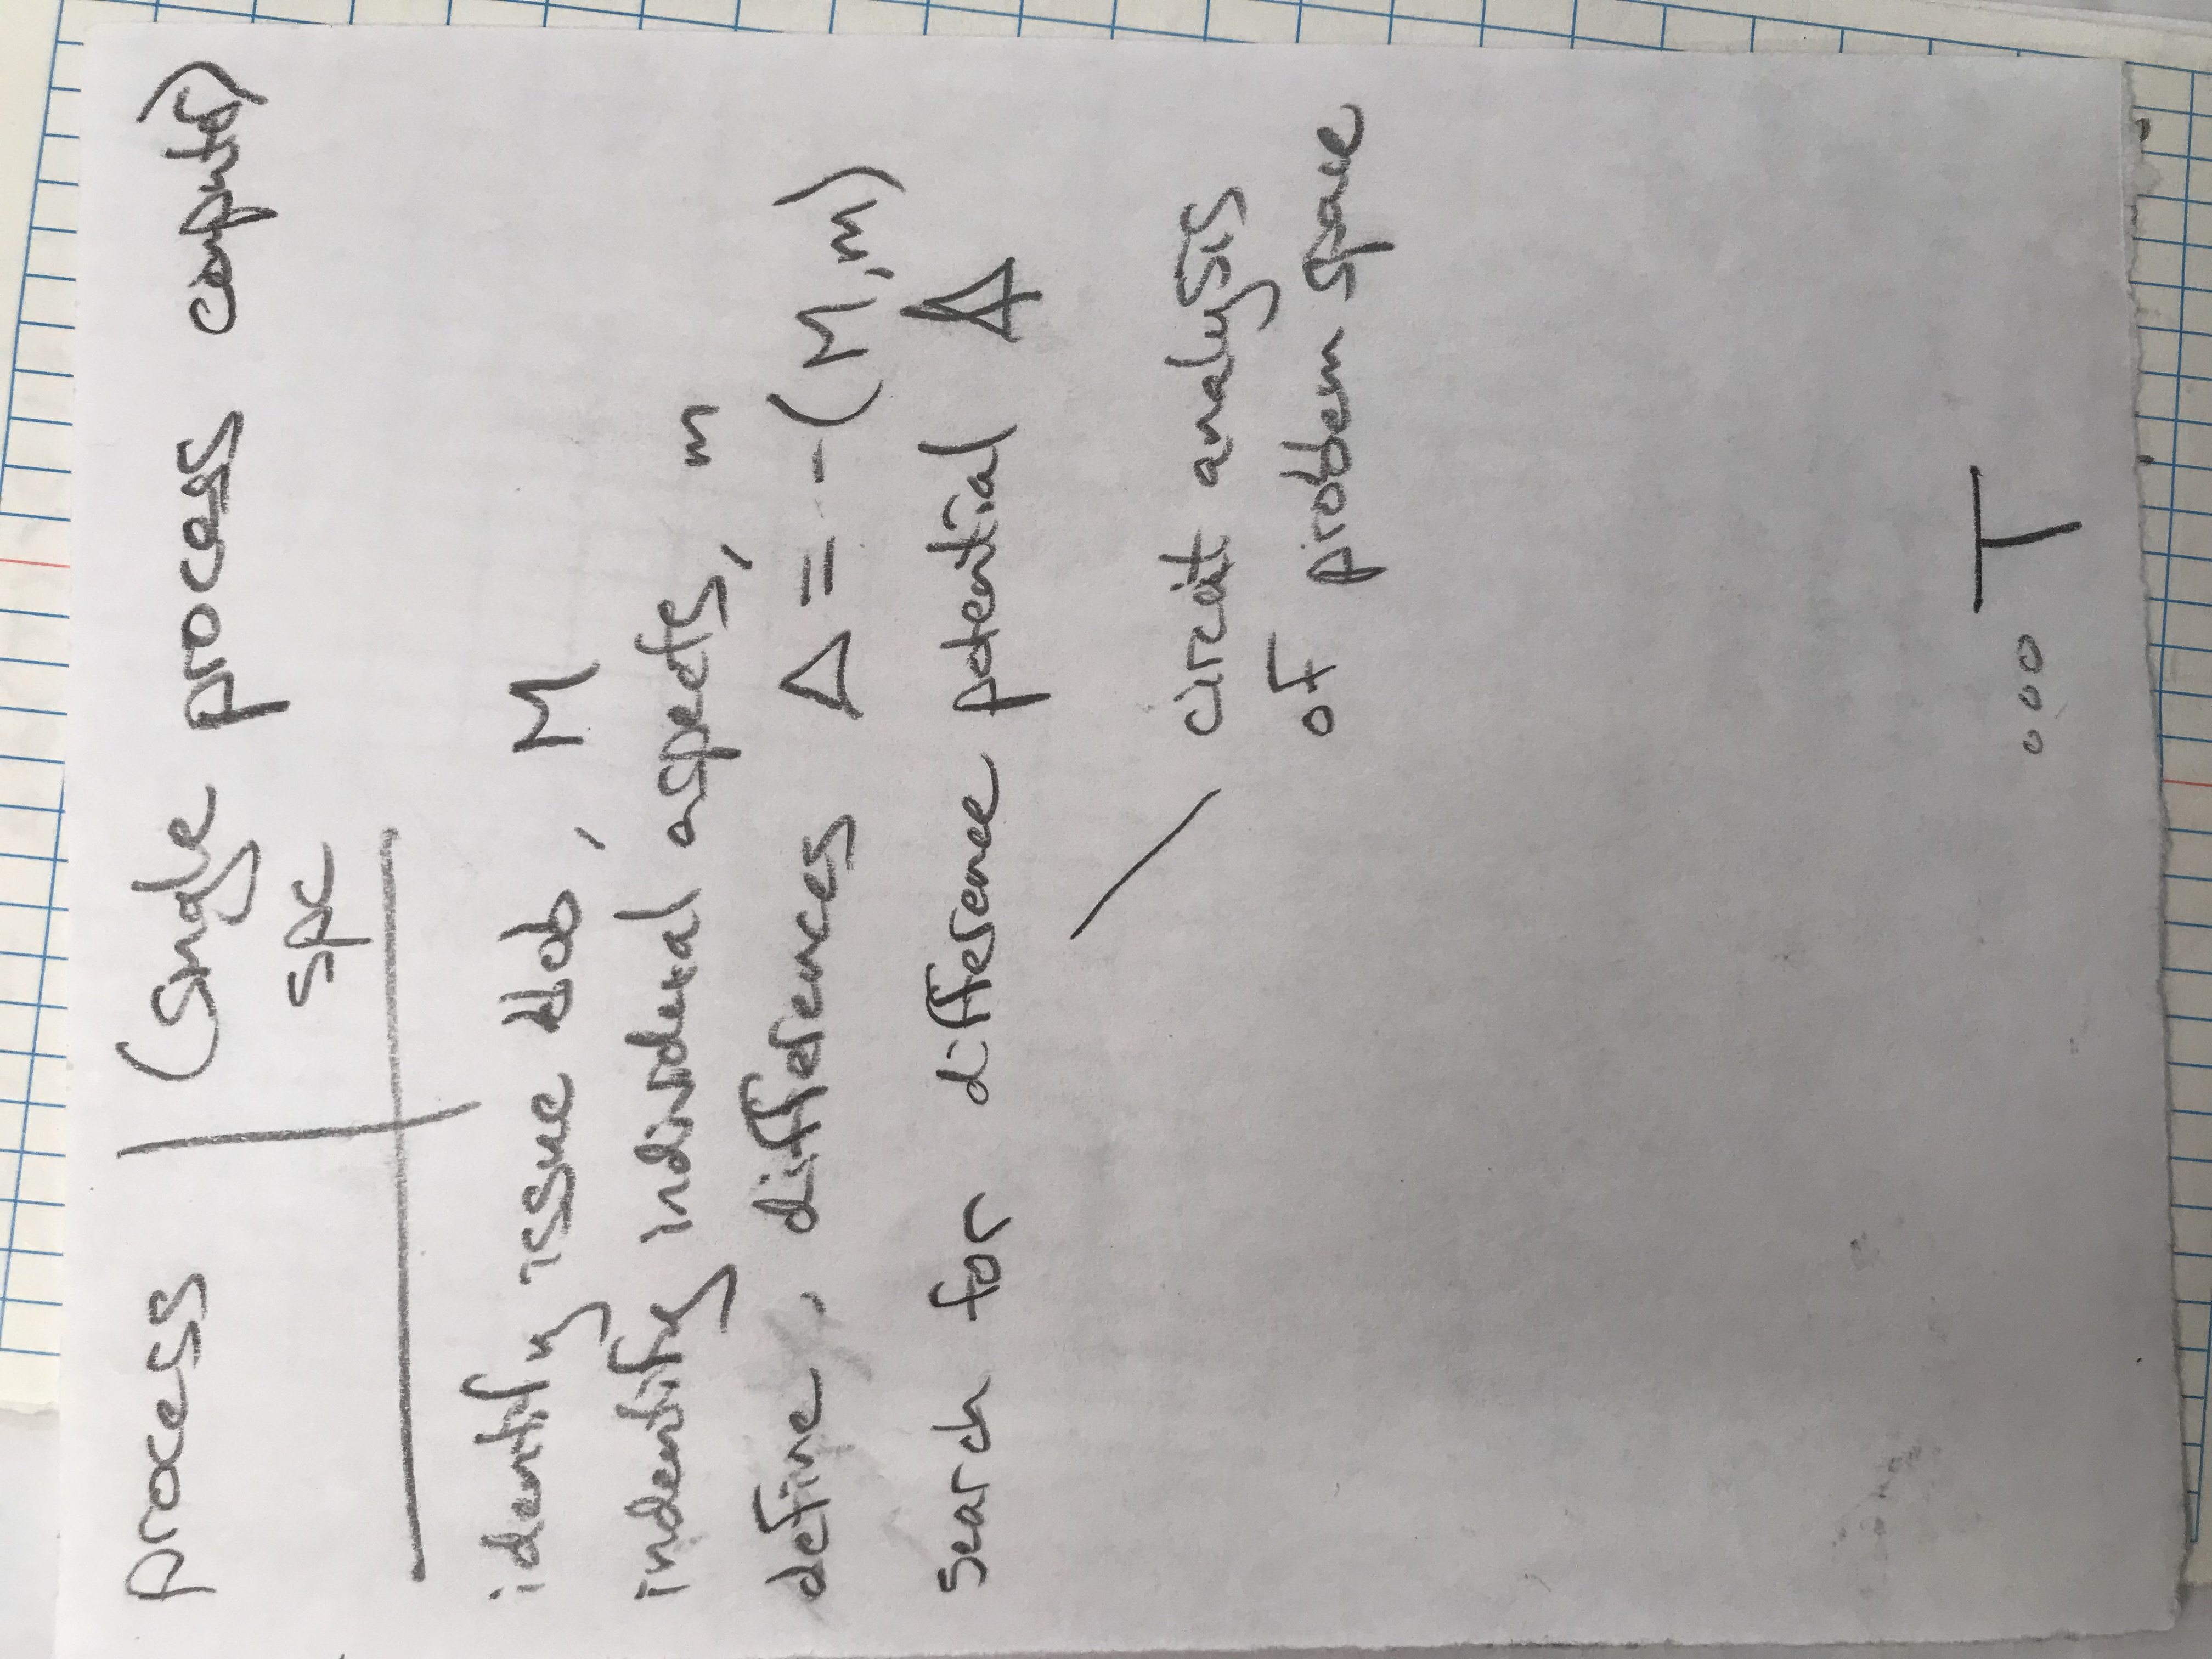 process (single process computer)
spc
identify issue blob, M
indentify individual aspects, m
define, differences Δ = -(M,m)
search for difference potential
circuit analysis
of problem space
ooo T